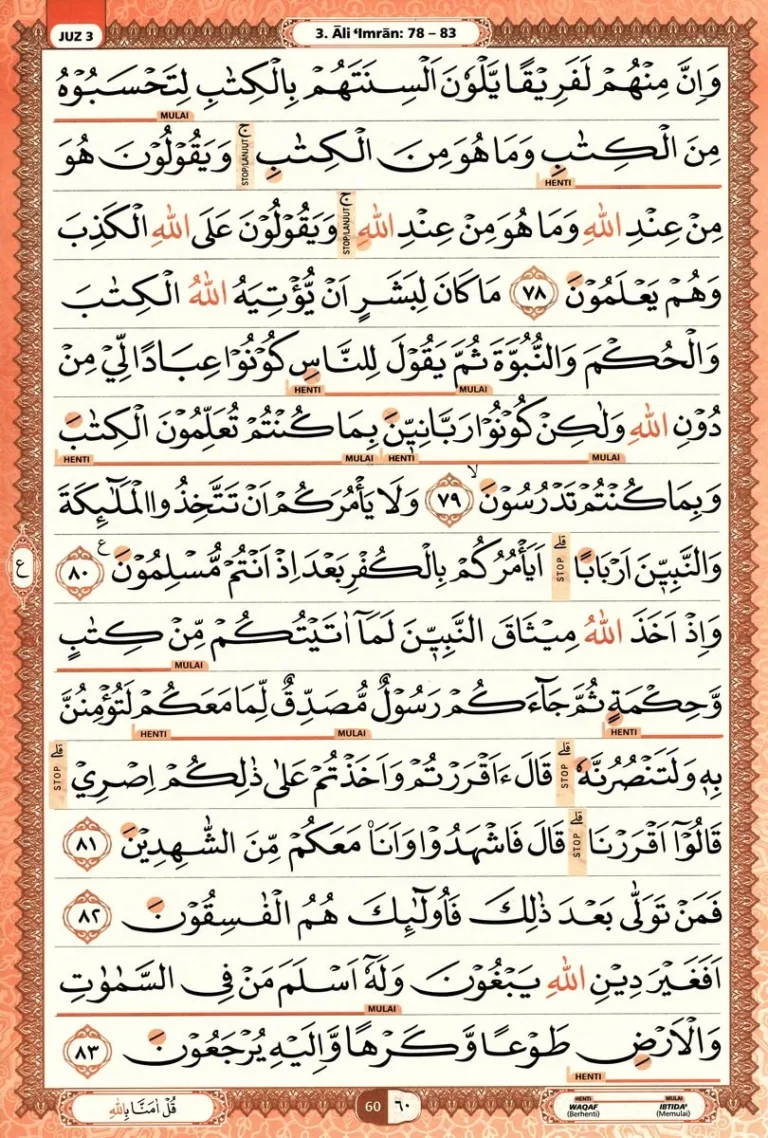 JUZ 3
3. Āli ‘Imrān: 78 – 83
وَاِنَّ مِنْهُمْ لَفَرِيْقًا يَّلْوٗنَ اَلْسِنَتَهُمْ بِالْكِتٰبِ لِتَحْسَبُوْهُ
MULAI
مِنَ الْكِتٰبِ وَمَا هُوَ مِنَ الْكِتٰبِۚ وَيَقُوْلُوْنَ هُوَ
STOP/LANJUT
HENTI
مِنْ عِنْدِ اللّٰهِ وَمَا هُوَ مِنْ عِنْدِ اللّٰهِۚ وَيَقُوْلُوْنَ عَلَى اللّٰهِ الْكَذِبَ
STOP/LANJUT
وَهُمْ يَعْلَمُوْنَ ٧٨ مَا كَانَ لِبَشَرٍ اَنْ يُّؤْتِيَهُ اللّٰهُ الْكِتٰبَ
وَالْحُكْمَ وَالنُّبُوَّةَ ثُمَّ يَقُوْلَ لِلنَّاسِ كُوْنُوْا عِبَادًا لِّيْ مِنْ
MULAI HENTI
دُوْنِ اللّٰهِ وَلٰكِنْ كُوْنُوْا رَبَّانِيّٖنَ بِمَا كُنْتُمْ تُعَلِّمُوْنَ الْكِتٰبَ
MULAI HENTI MULAI HENTI
وَبِمَا كُنْتُمْ تَدْرُسُوْنَ ۙ ٧٩ وَلَا يَأْمُرَكُمْ اَنْ تَتَّخِذُوا الْمَلٰۤىِٕكَةَ
وَالنَّبِيّٖنَ اَرْبَابًا ۗ اَيَأْمُرُكُمْ بِالْكُفْرِ بَعْدَ اِذْ اَنْتُمْ مُّسْلِمُوْنَ ع ٨٠
STOP
ع
وَاِذْ اَخَذَ اللّٰهُ مِيْثَاقَ النَّبِيّٖنَ لَمَآ اٰتَيْتُكُمْ مِّنْ كِتٰبٍ
MULAI
وَّحِكْمَةٍ ثُمَّ جَاۤءَكُمْ رَسُوْلٌ مُّصَدِّقٌ لِّمَا مَعَكُمْ لَتُؤْمِنُنَّ
HENTI MULAI HENTI
بِهٖ وَلَتَنْصُرُنَّهٗ ۗ قَالَ ءَاَقْرَرْتُمْ وَاَخَذْتُمْ عَلٰى ذٰلِكُمْ اِصْرِيْ ۗ
STOP STOP
قَالُوْٓا اَقْرَرْنَا ۗ قَالَ فَاشْهَدُوْا وَاَنَا۠ مَعَكُمْ مِّنَ الشّٰهِدِيْنَ ٨١
STOP
فَمَنْ تَوَلّٰى بَعْدَ ذٰلِكَ فَاُولٰۤىِٕكَ هُمُ الْفٰسِقُوْنَ ٨٢
اَفَغَيْرَ دِيْنِ اللّٰهِ يَبْغُوْنَ وَلَهٗٓ اَسْلَمَ مَنْ فِى السَّمٰوٰتِ
MULAI
وَالْاَرْضِ طَوْعًا وَّكَرْهًا وَّاِلَيْهِ يُرْجَعُوْنَ ٨٣
HENTI
قُلْ اٰمَنَّا بِاللّٰهِ
60 ٦٠
HENTI MULAI
WAQAF IBTIDA'
(Berhenti) (Memulai)